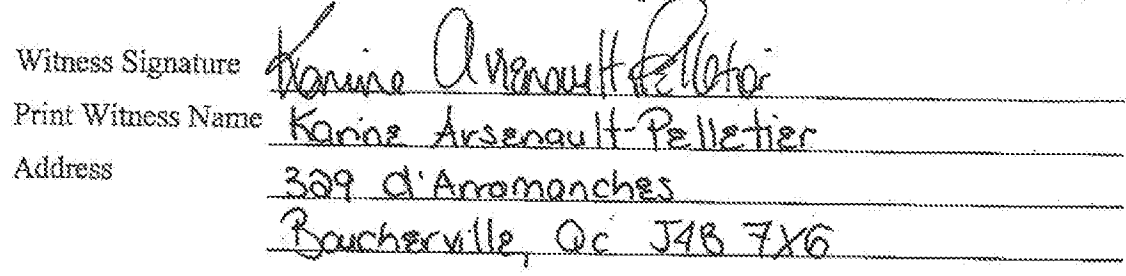 Witness Signature Karine Arsenault-Pelletier
Print Witness Name Karine Arsenault-Pelletier
Address 329 d'Arromanches
Boucherville, Qc J4B 7X6